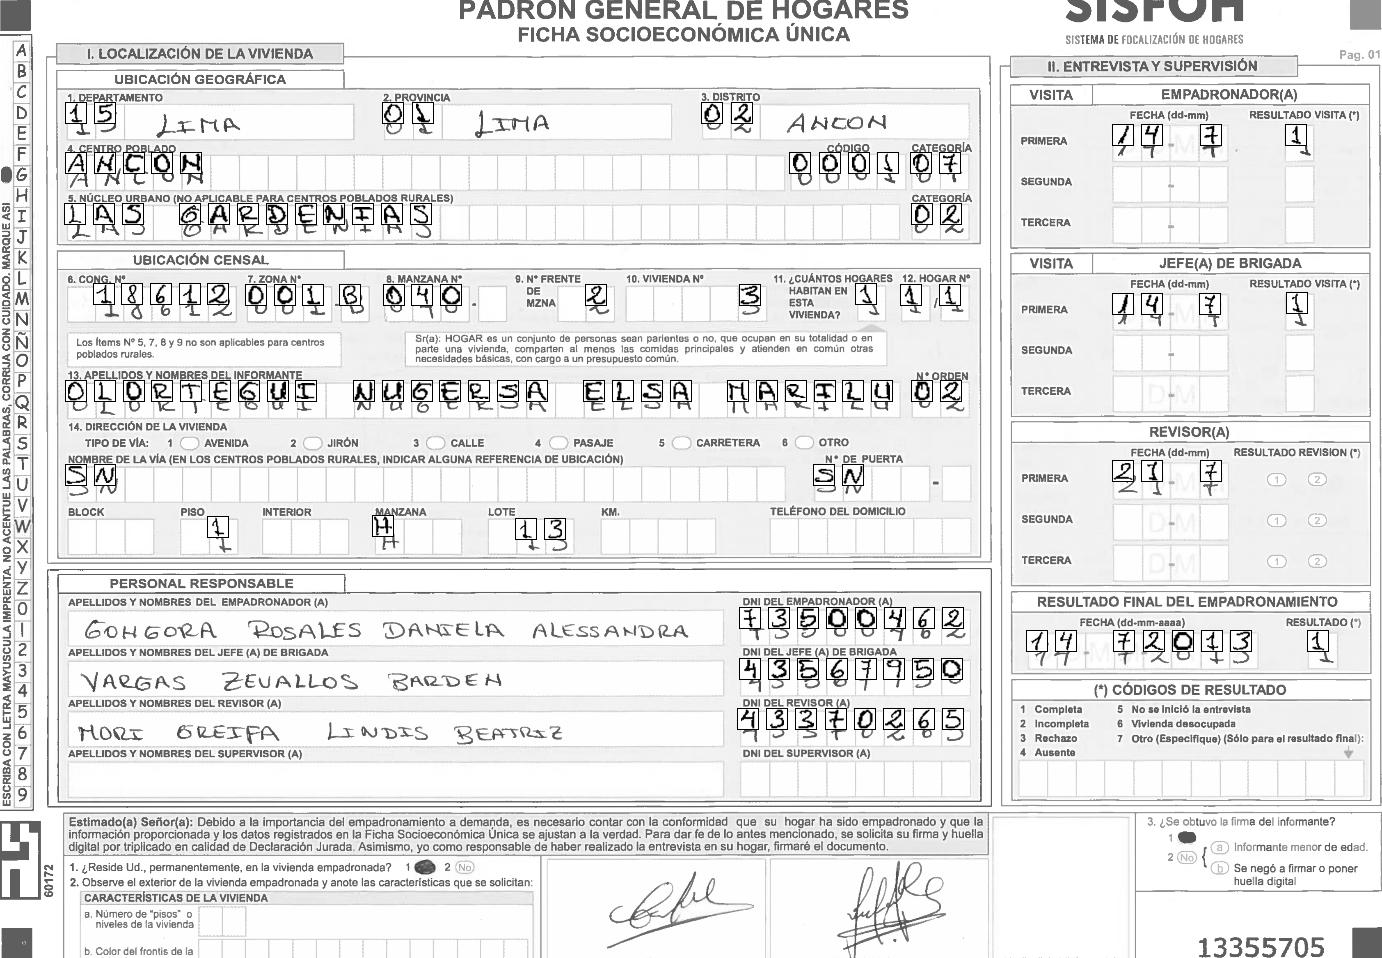 PADRON GENERAL DE HOGARES
FICHA SOCIOECONÓMICA ÚNICA
SISFOH
SISTEMA DE FOCALIZACIÓN DE HOGARES
Pag. 01
ESCRIBA CON LETRA MAYUSCULA IMPRENTA. NO ACENTUE LAS PALABRAS, CORRIJA CON CUIDADO. MARQUE ASI
A B C D E F G H I J K L M N Ñ O P Q R S T U V W X Y Z 0 1 2 3 4 5 6 7 8 9
I. LOCALIZACIÓN DE LA VIVIENDA
UBICACIÓN GEOGRÁFICA
1. DEPARTAMENTO 2. PROVINCIA 3. DISTRITO
15 LIMA 01 LIMA 02 ANCON
4. CENTRO POBLADO CÓDIGO CATEGORÍA
ANCON 0001 07
5. NÚCLEO URBANO (NO APLICABLE PARA CENTROS POBLADOS RURALES) CATEGORÍA
LAS GARDENIAS 02
UBICACIÓN CENSAL
6. CONG. Nº 7. ZONA Nº 8. MANZANA Nº 9. Nº FRENTE DE MZNA 10. VIVIENDA Nº 11. ¿CUÁNTOS HOGARES HABITAN EN ESTA VIVIENDA? 12. HOGAR Nº
18612 001 B 040 - 2 3 1 1/1
Los Ítems Nº 5, 7, 8 y 9 no son aplicables para centros poblados rurales.
Sr(a): HOGAR es un conjunto de personas sean parientes o no, que ocupan en su totalidad o en
parte una vivienda, comparten al menos las comidas principales y atienden en común otras
necesidades básicas, con cargo a un presupuesto común.
13. APELLIDOS Y NOMBRES DEL INFORMANTE Nº ORDEN
OLORTEGUI NUGERSA ELSA MARILU 02
14. DIRECCIÓN DE LA VIVIENDA
TIPO DE VÍA: 1 AVENIDA 2 JIRÓN 3 CALLE 4 PASAJE 5 CARRETERA 6 OTRO
NOMBRE DE LA VÍA (EN LOS CENTROS POBLADOS RURALES, INDICAR ALGUNA REFERENCIA DE UBICACIÓN) Nº DE PUERTA
SN SN -
BLOCK PISO INTERIOR MANZANA LOTE KM. TELÉFONO DEL DOMICILIO
1 H 13
PERSONAL RESPONSABLE
APELLIDOS Y NOMBRES DEL EMPADRONADOR (A) DNI DEL EMPADRONADOR (A)
GONGORA ROSALES DANIELA ALESSANDRA 73500462
APELLIDOS Y NOMBRES DEL JEFE (A) DE BRIGADA DNI DEL JEFE (A) DE BRIGADA
VARGAS ZEVALLOS BARDEN 43567950
APELLIDOS Y NOMBRES DEL REVISOR (A) DNI DEL REVISOR (A)
MORI GREIFA LINDIS BEATRIZ 43370265
APELLIDOS Y NOMBRES DEL SUPERVISOR (A) DNI DEL SUPERVISOR (A)
II. ENTREVISTA Y SUPERVISIÓN
VISITA EMPADRONADOR(A)
FECHA (dd-mm) RESULTADO VISITA (*)
PRIMERA 14 - 7 1
SEGUNDA -
TERCERA -
VISITA JEFE(A) DE BRIGADA
FECHA (dd-mm) RESULTADO VISITA (*)
PRIMERA 14 - 7 1
SEGUNDA -
TERCERA D-M
REVISOR(A)
FECHA (dd-mm) RESULTADO REVISION (*)
PRIMERA 21 7 1 2
SEGUNDA D-M 1 2
TERCERA D-M 1 2
RESULTADO FINAL DEL EMPADRONAMIENTO
FECHA (dd-mm-aaaa) RESULTADO (*)
14 - 7 2013 1
(*) CÓDIGOS DE RESULTADO
1 Completa 5 No se inició la entrevista
2 Incompleta 6 Vivienda desocupada
3 Rechazo 7 Otro (Especifique) (Sólo para el resultado final):
4 Ausente
Estimado(a) Señor(a): Debido a la importancia del empadronamiento a demanda, es necesario contar con la conformidad que su hogar ha sido empadronado y que la
información proporcionada y los datos registrados en la Ficha Socioeconómica Única se ajustan a la verdad. Para dar fe de lo antes mencionado, se solicita su firma y huella
digital por triplicado en calidad de Declaración Jurada. Asimismo, yo como responsable de haber realizado la entrevista en su hogar, firmaré el documento.
1. ¿Reside Ud., permanentemente, en la vivienda empadronada? 1 2 No
2. Observe el exterior de la vivienda empadronada y anote las características que se solicitan:
CARACTERÍSTICAS DE LA VIVIENDA
a. Número de "pisos" o niveles de la vivienda
b. Color del frontis de la
3. ¿Se obtuvo la firma del informante?
1
2 No { a Informante menor de edad.
b Se negó a firmar o poner huella digital
60172
13355705